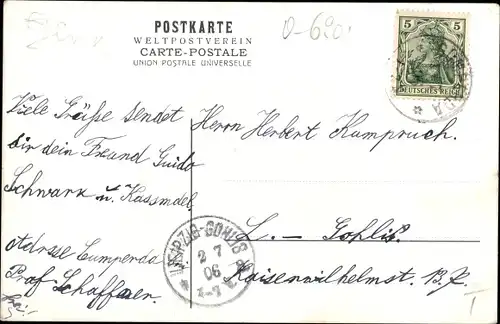 POSTKARTE
WELTPOSTVEREIN
CARTE-POSTALE
UNION POSTALE UNIVERSELLE
5 5
DEUTSCHES REICH
Viele Grüße sendet
dir dein Freund Guido
Schwarz u. Kassmdel
Adresse Cumperda
Prof. Schaffner.
Herrn Herbert Kampruch.
L. – Gohlis.
Kaiserwilhelmst.
LEIPZIG-GOHLIS
2 7
06